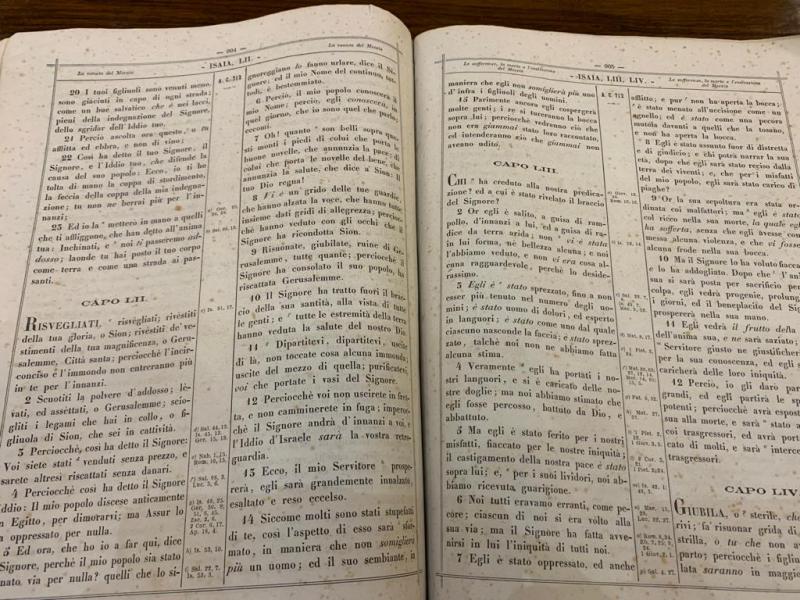 — 904 —
La venuta del Messia
La venuta del Messia
ISAIA, LII.
20 I tuoi figliuoli son venuti meno,
sono giaciuti in capo di ogni strada,
come un bue salvatico che è nei lacci,
pieni della indegnazione del Signore,
dello sgridar dell'Iddio tuo.
21 Perciò ascolta ora questo, o tu
afflitta ed ebbra, e non di vino;
22 Così ha detto il tuo Signore, il
Signore, e l'Iddio tuo, che difende la
causa del suo popolo: Ecco, io ti ho
tolta di mano la coppa di stordimento,
la feccia della coppa della mia indegna-
zione; tu non ne berrai più per l'in-
nanzi;
23 Ed io la metterò in mano a quelli
che ti affliggono, che han detto all'anima
tua: Inchinati, e noi ti passeremo ad-
dosso; laonde tu hai posto il tuo corpo
come terra e come una strada ai pas-
santi.
CAPO LII.
RISVEGLIATI, risvegliati; rivestiti
della tua gloria, o Sion; rivestiti de've-
stimenti della tua magnificenza, o Geru-
salemme, Città santa; perciocchè l'incir-
conciso e l'immondo non entreranno più
in te per l'innanzi.
2 Scuotiti la polvere d'addosso; lè-
vati, ed assèttati, o Gerusalemme; scio-
gliti i legami che hai in collo, o fi-
gliuola di Sion, che sei in cattività.
3 Perciocchè, così ha detto il Signore:
Voi siete stati venduti senza prezzo, e
sarete altresì riscattati senza danari.
4 Perciocchè così ha detto il Signore
Iddio: Il mio popolo discese anticamente
in Egitto, per dimorarvi; ma Assur lo
ha oppressato per nulla.
5 Ed ora, che ho io a far qui, dice
il Signore, perchè il mio popolo sia stato
menato via per nulla? quelli che lo si-
A. C. 712
gnoreggiano lo fanno urlare, dice il Si-
gnore; ed il mio Nome del continuo, tut-
todì, è bestemmiato.
6 Perciò, il mio popolo conoscerà il
mio Nome; perciò, egli conoscerà, in
quel giorno, che io sono quel che parlo;
eccomi.
7 Oh! quanto son belli sopra que-
sti monti i piedi di colui che porta le
buone novelle, che annunzia la pace; di
colui che porta le novelle del bene, che
annunzia la salute, che dice a Sion: Il
tuo Dio regna!
8 Vi è un grido delle tue guardie,
che hanno alzata la voce, che hanno tutte
insieme dati gridi di allegrezza; percioc-
chè hanno veduto con gli occhi che il
Signore ha ricondotta Sion.
9 Risonate, giubilate, ruine di Ge-
rusalemme, tutte quante; perciocchè il
Signore ha consolato il suo popolo, ha
riscattata Gerusalemme.
10 Il Signore ha tratto fuori il brac-
cio della sua santità, alla vista di tutte
le genti; e tutte le estremità della terra
hanno veduta la salute del nostro Dio.
11 Dipartitevi, dipartitevi, uscite
di là, non toccate cosa alcuna immonda;
uscite del mezzo di quella; purificatevi,
voi che portate i vasi del Signore.
12 Perciocchè voi non uscirete in fret-
ta, e non camminerete in fuga; imperoc-
chè il Signore andrà d'innanzi a voi, e
l'Iddio d'Israele sarà la vostra retro-
guardia.
13 Ecco, il mio Servitore prospe-
rerà, egli sarà grandemente innalzato,
esaltato e reso eccelso.
14 Siccome molti sono stati stupefatti
di te, così l'aspetto di esso sarà sfor-
mato, in maniera che non somiglierà
più un uomo; ed il suo sembiante, in
— 905 —
Le sofferenze, la morte e l'esaltazione
del Messia
Le sofferenze, la morte e l'esaltazione
del Messia
ISAIA, LIII, LIV.
maniera che egli non somiglierà più uno
d'infra i figliuoli degli uomini.
15 Parimente ancora egli cospergerà
molte genti; i re si tureranno la bocca
sopra lui; perciocchè vedranno ciò che
non era giammai stato loro raccontato,
ed intenderanno ciò che giammai non
aveano udito.
CAPO LIII.
CHI ha creduto alla nostra predica-
zione? ed a cui è stato rivelato il braccio
del Signore?
2 Or egli è salito, a guisa di ram-
pollo, d'innanzi a lui, ed a guisa di ra-
dice da terra arida; non vi è stata
in lui forma, nè bellezza alcuna; e noi
l'abbiamo veduto, e non vi era cosa al-
cuna ragguardevole, perchè lo deside-
rassimo.
3 Egli è stato sprezzato, fino a non
esser più tenuto nel numero degli uo-
mini; è stato uomo di dolori, ed esperto
in languori; è stato come uno dal quale
ciascuno nasconde la faccia; è stato sprez-
zato, talchè noi non ne abbiamo fatta
alcuna stima.
4 Veramente egli ha portati i no-
stri languori, e si è caricato delle no-
stre doglie; ma noi abbiamo stimato che
egli fosse percosso, battuto da Dio, e
abbattuto.
5 Ma egli è stato ferito per i nostri
misfatti, fiaccato per le nostre iniquità;
il castigamento della nostra pace è stato
sopra lui; e, per i suoi lividori, noi ab-
biamo ricevuta guarigione.
6 Noi tutti eravamo erranti, come pe-
core; ciascun di noi si era vòlto alla
sua via; ma il Signore ha fatta avve-
nirsi in lui l'iniquità di tutti noi.
7 Egli è stato oppressato, ed anche
A. C. 712
afflitto; e pur non ha aperta la bocca;
è stato menato all'uccisione come un
agnello; ed è stato come una pecora
mutola davanti a quelli che la tosano,
e non ha aperta la bocca.
8 Egli è stato assunto fuor di distretta
e di giudicio; e chi potrà narrar la sua
età, dopo che egli sarà stato reciso dalla
terra dei viventi; e, che per i misfatti
del mio popolo, egli sarà stato carico di
piaghe?
9 Or la sua sepoltura era stata or-
dinata coi malfattori; ma egli è stato
col ricco nella sua morte, la quale egli
ha sofferta, senza che egli avesse com-
messa alcuna violenza, e che vi fosse
alcuna frode nella sua bocca.
10 Ma il Signore lo ha voluto fiaccare,
e lo ha addogliato. Dopo che l'ani-
ma sua si sarà posta per sacrificio per la
colpa, egli vedrà progenie, prolungherà
i giorni, ed il beneplacito del Signore
prospererà nella sua mano.
11 Egli vedrà il frutto della
dell'anima sua, e ne sarà saziato;
Servitore giusto ne giustificherà
per la sua conoscenza, ed egli
caricherà delle loro iniquità.
12 Perciò, io gli darò par
grandi, ed egli partirà le sp
potenti; perciocchè avrà espost
sua alla morte, e sarà stato
coi trasgressori, ed avrà port
cato di molti, e sarà interc
trasgressori.
CAPO LIV
GIUBILA, o sterile, che
rivi; fa risuonar grida di
strilla, o tu che non
parto; perciocchè i figliu
lata saranno in maggio